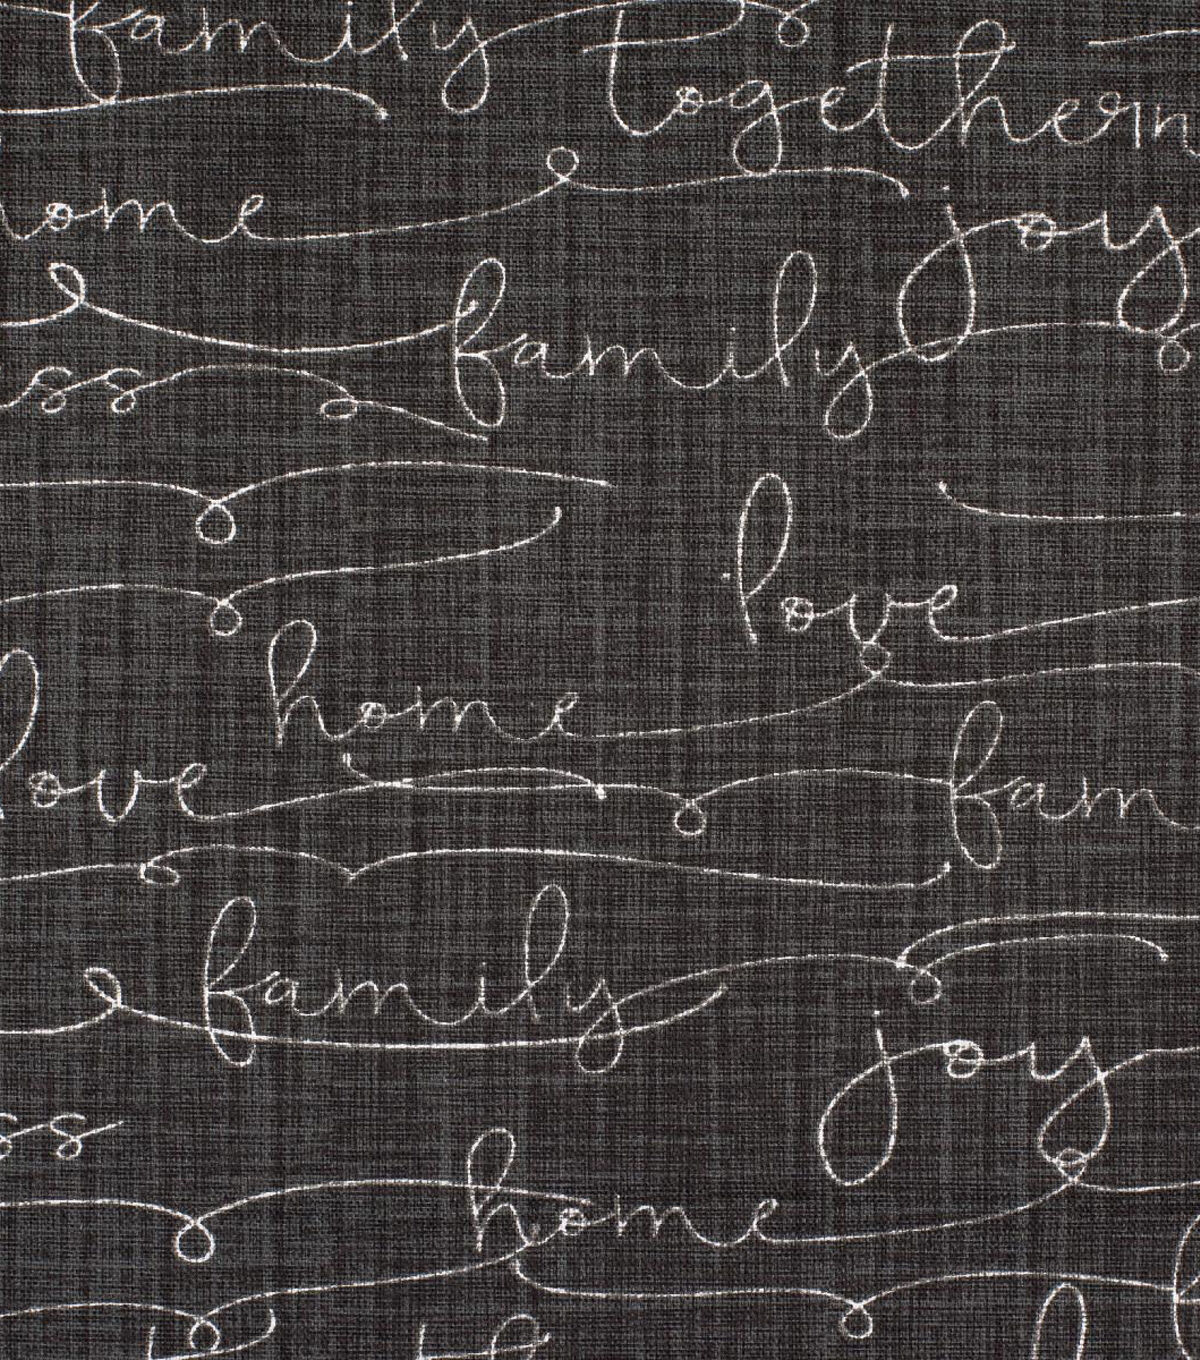 family
togethern
home
joy
family
ss
love
home
love
fam
family
joy
ss
home